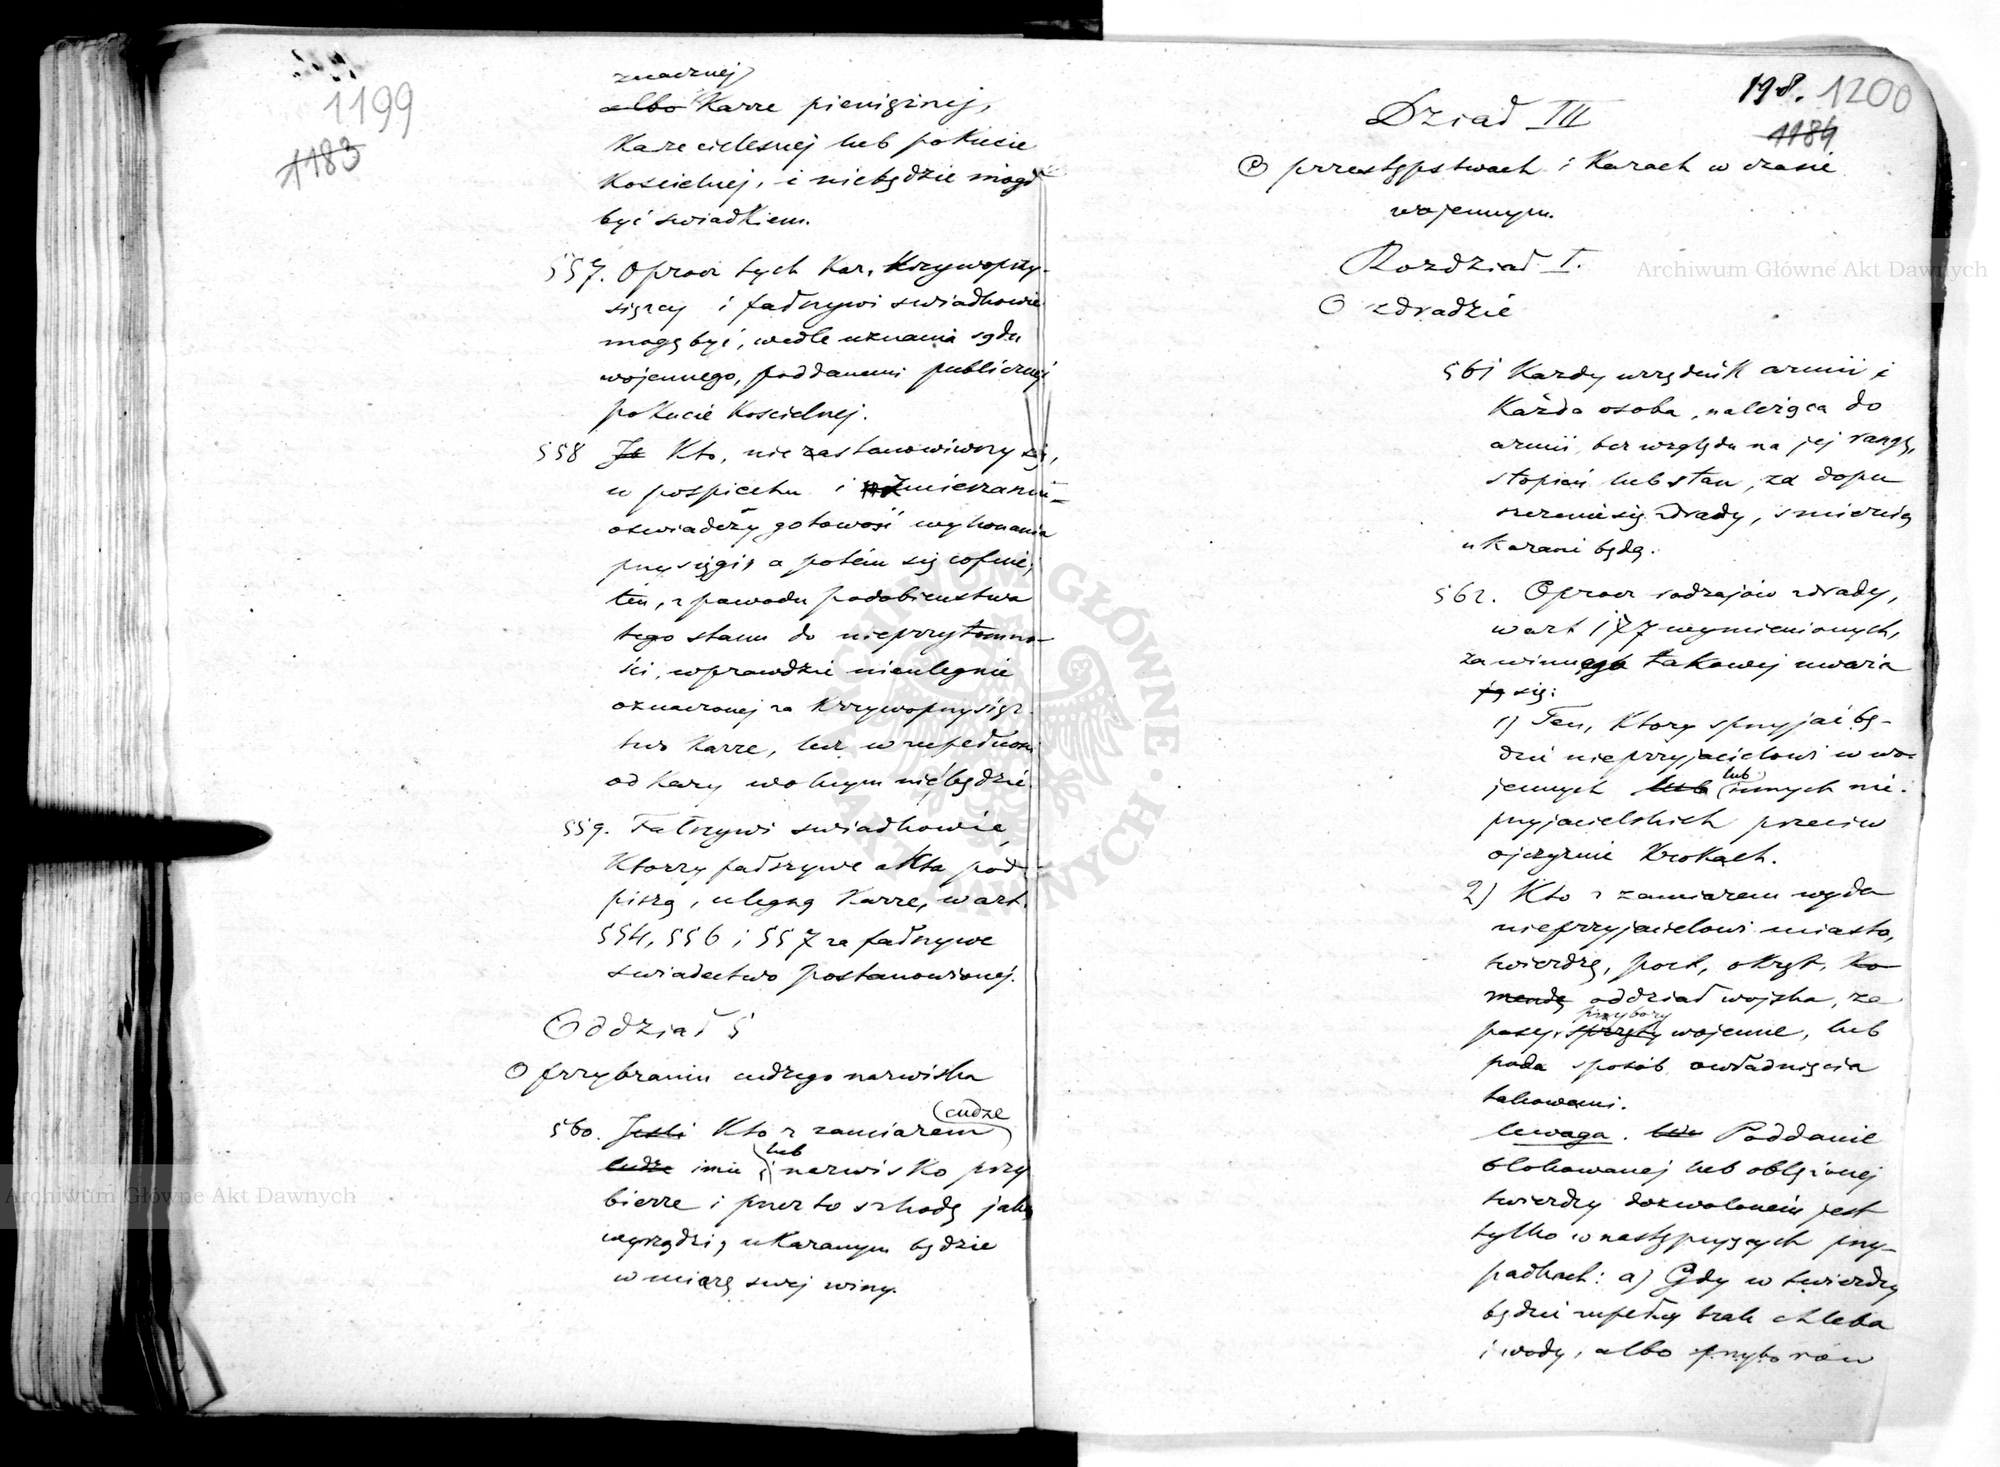 1199
1183
znacznej
albo Karze pieniężnej,
Karze cielesnej lub pokucie
Kościelnej, i niebędzie mógł
być swiadkiem.
557. Oprócz tych Kar, Krzywoprzy-
sięzcy i fałszywi swiadkowie
mogą być, wedle uznania sądu
wojennego, poddanemi publicznej
pokucie Kościelnej.
558 Je Kto, nie zastanowiwszy się,
w pospiechu i zmieszaniu
oświadczy gotowość wykonania
przysięgi, a potem się cofnie,
ten, z powodu podobieństwa
tego stanu do nieprzytomno-
ści, wprawdzie nieulegnie
oznaczonej za Krzywoprzysięz-
two Karze, lecz w zupełności
od Kary wolnym nie będzie.
559. Fałszywi swiadkowie,
Ktorzy fałszywe akta pod-
piszą, ulegną Karze, w art.
554, 556 i 557 za fałszywe
swiadectwo postanowionej.
Oddział 5
O przybraniu cudzego nazwiska
560. Jesli Kto z zamiarem cudze
cudze imie i lub nazwisko przy
bierze i przez to szkodę jaką
wyrządzi, ukaranym będzie
w miarę swej winy.
198. 1200
1184
Dział III
O przestępstwach i Karach w czasie
wojennym.
Rozdział I.
O zdradzie
561 Każdy urzędnik armii i
Każda osoba, należąca do
armii, bez względu na jej rangę,
stopień lub stan, za dopu
szczenie się zdrady, śmiercią
ukarani będą.
562. Oprócz rodzajów zdrady,
w art 177 wymienionych,
za winnego takowej uważa
ją się:
1) Ten, Ktory sprzyjać bę-
dzie nieprzyjacielowi w wo-
jennych lub lub innych nie-
przyjacielskich przeciw
ojczyznie Krokach.
2) Kto z zamiarem wyda
nieprzyjacielowi miasto,
twierdzę, port, okręt, Ko
mendę oddział wojska, za
pasy, sprzęty przybory wojenne, lub
poda sposób owładnięcia
takowemi.
Uwaga. Poddanie
blokowanej lub oblężonej
twierdzy dozwolonem jest
tylko w następujących przy-
padkach: a) Gdy w twierdzy
będzie zupełny brak chleba
i wody, albo przyborów
Archiwum Główne Akt Dawnych
Archiwum Główne Akt Dawnych
ARCHIWUM GŁÓWNE · AKT DAWNYCH ·